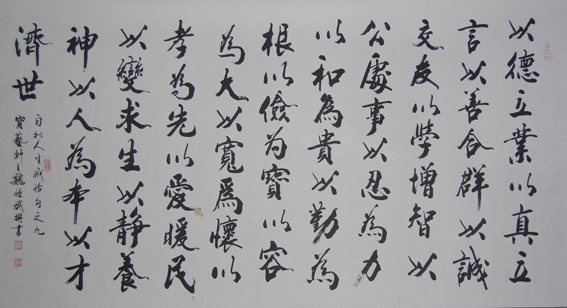 以德立業以真立
言以善合群以誠
交友以學增智以
公處事以忍為力
以和為貴以勤為
根以儉為寶以容
為大以寬為懷以
孝為先以愛暖民
以變求生以静養
神以人為本以才
濟世
自拟人生感悟句之九
寶藝軒主魏
撰書